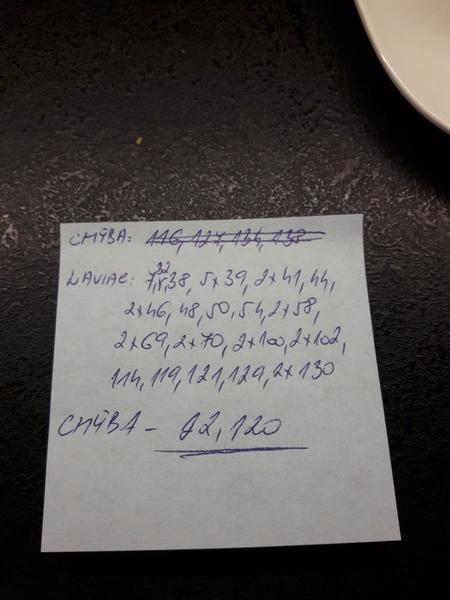 CHÝBA: 116, 127, 134, 138
NAVIAC: 7, 32, 38, 5x39, 2x41, 44,
2x46, 48, 50, 54, 2x58,
2x69, 2x70, 2x100, 2x102,
114, 119, 121, 129, 2x130
CHÝBA - 92, 120